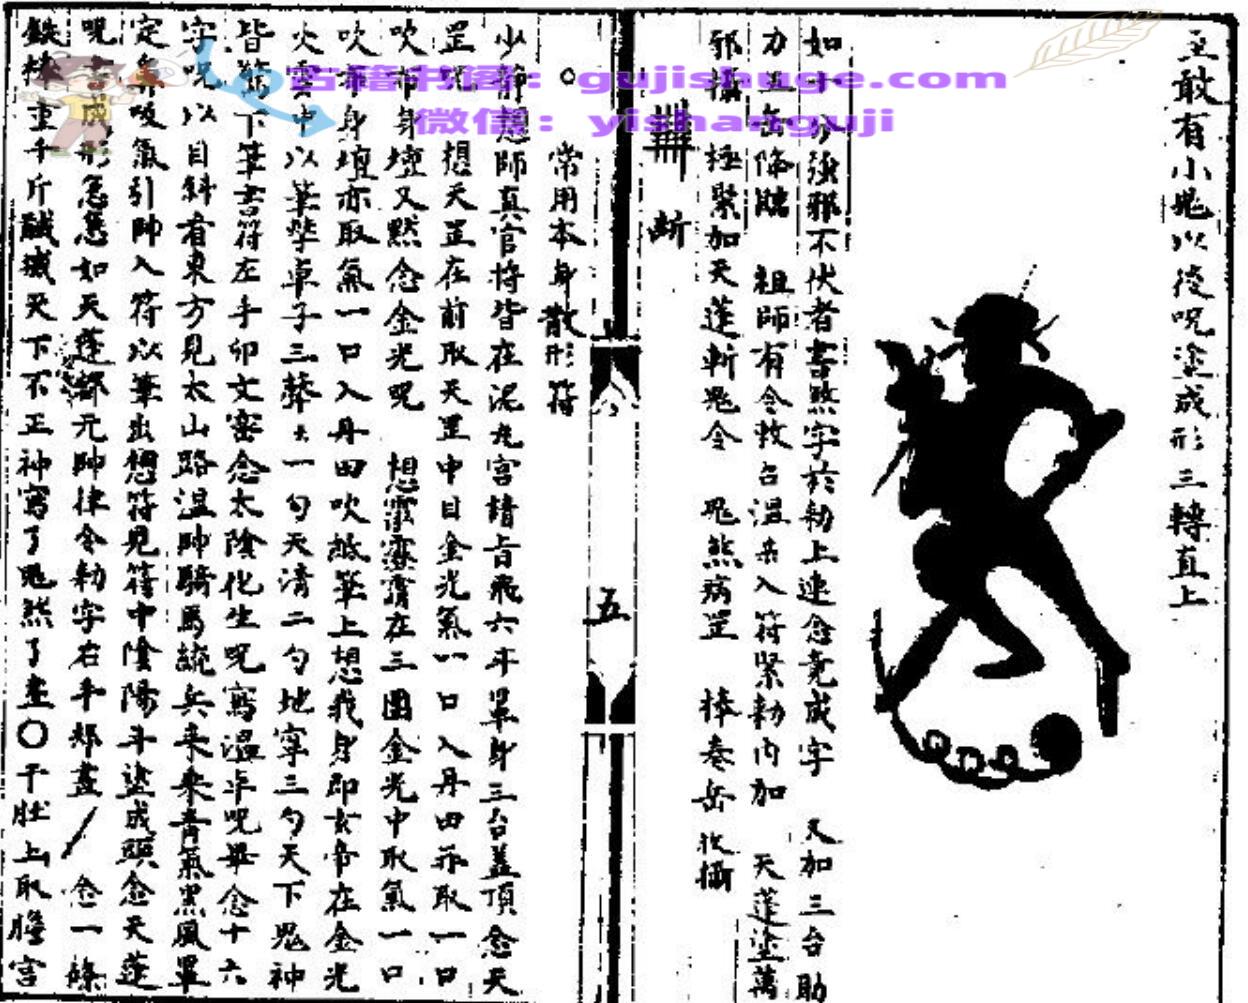 五敢有小鬼以後呪塗成形三轉直上
如十分強邪不伏者書煞字於勑上速念竟成字 又加三台助
力五缶降賭 祖師有令牧召溫岳入符緊勑內加 天蓬塗萬
邪攝極聚加天蓬斬鬼令 鬼煞病罡 棒奏岳收攝
斬
五
○常用本身散形符
少靜想師真官將皆在泥丸宮請旨飛六斗罩身三台蓋頂念天
罡呪 想天罡在前取天罡中目金光氣一口入丹田亦取一口
吹布身壇又黙念金光呪 想靈霄在三團金光中取氣一口
吹布身壇亦取氣一口入丹田吹紙筆上想我身即玄帝在金光
火雲中以筆擊卓子三聲 一勺天清二勺地寧三勺天下鬼神
皆篤下筆書符左手卯文密念太陰化生呪寫溫字呪畢念十六
字呪以目斜看東方見太山路溫帥騎馬統兵來乘青氣黑風罩
定布吸氣引帥入符以筆出想符見符中陰陽斗塗成頭念天蓬
呪書成形急急如天蓬都元帥律令勑字右手郑畫 / 念一條
鉄棒重千斤 滅天下不正神寫了鬼煞了畫○于肚上取膽宮
古籍书阁：gujishuge.com
微信：yishanguji